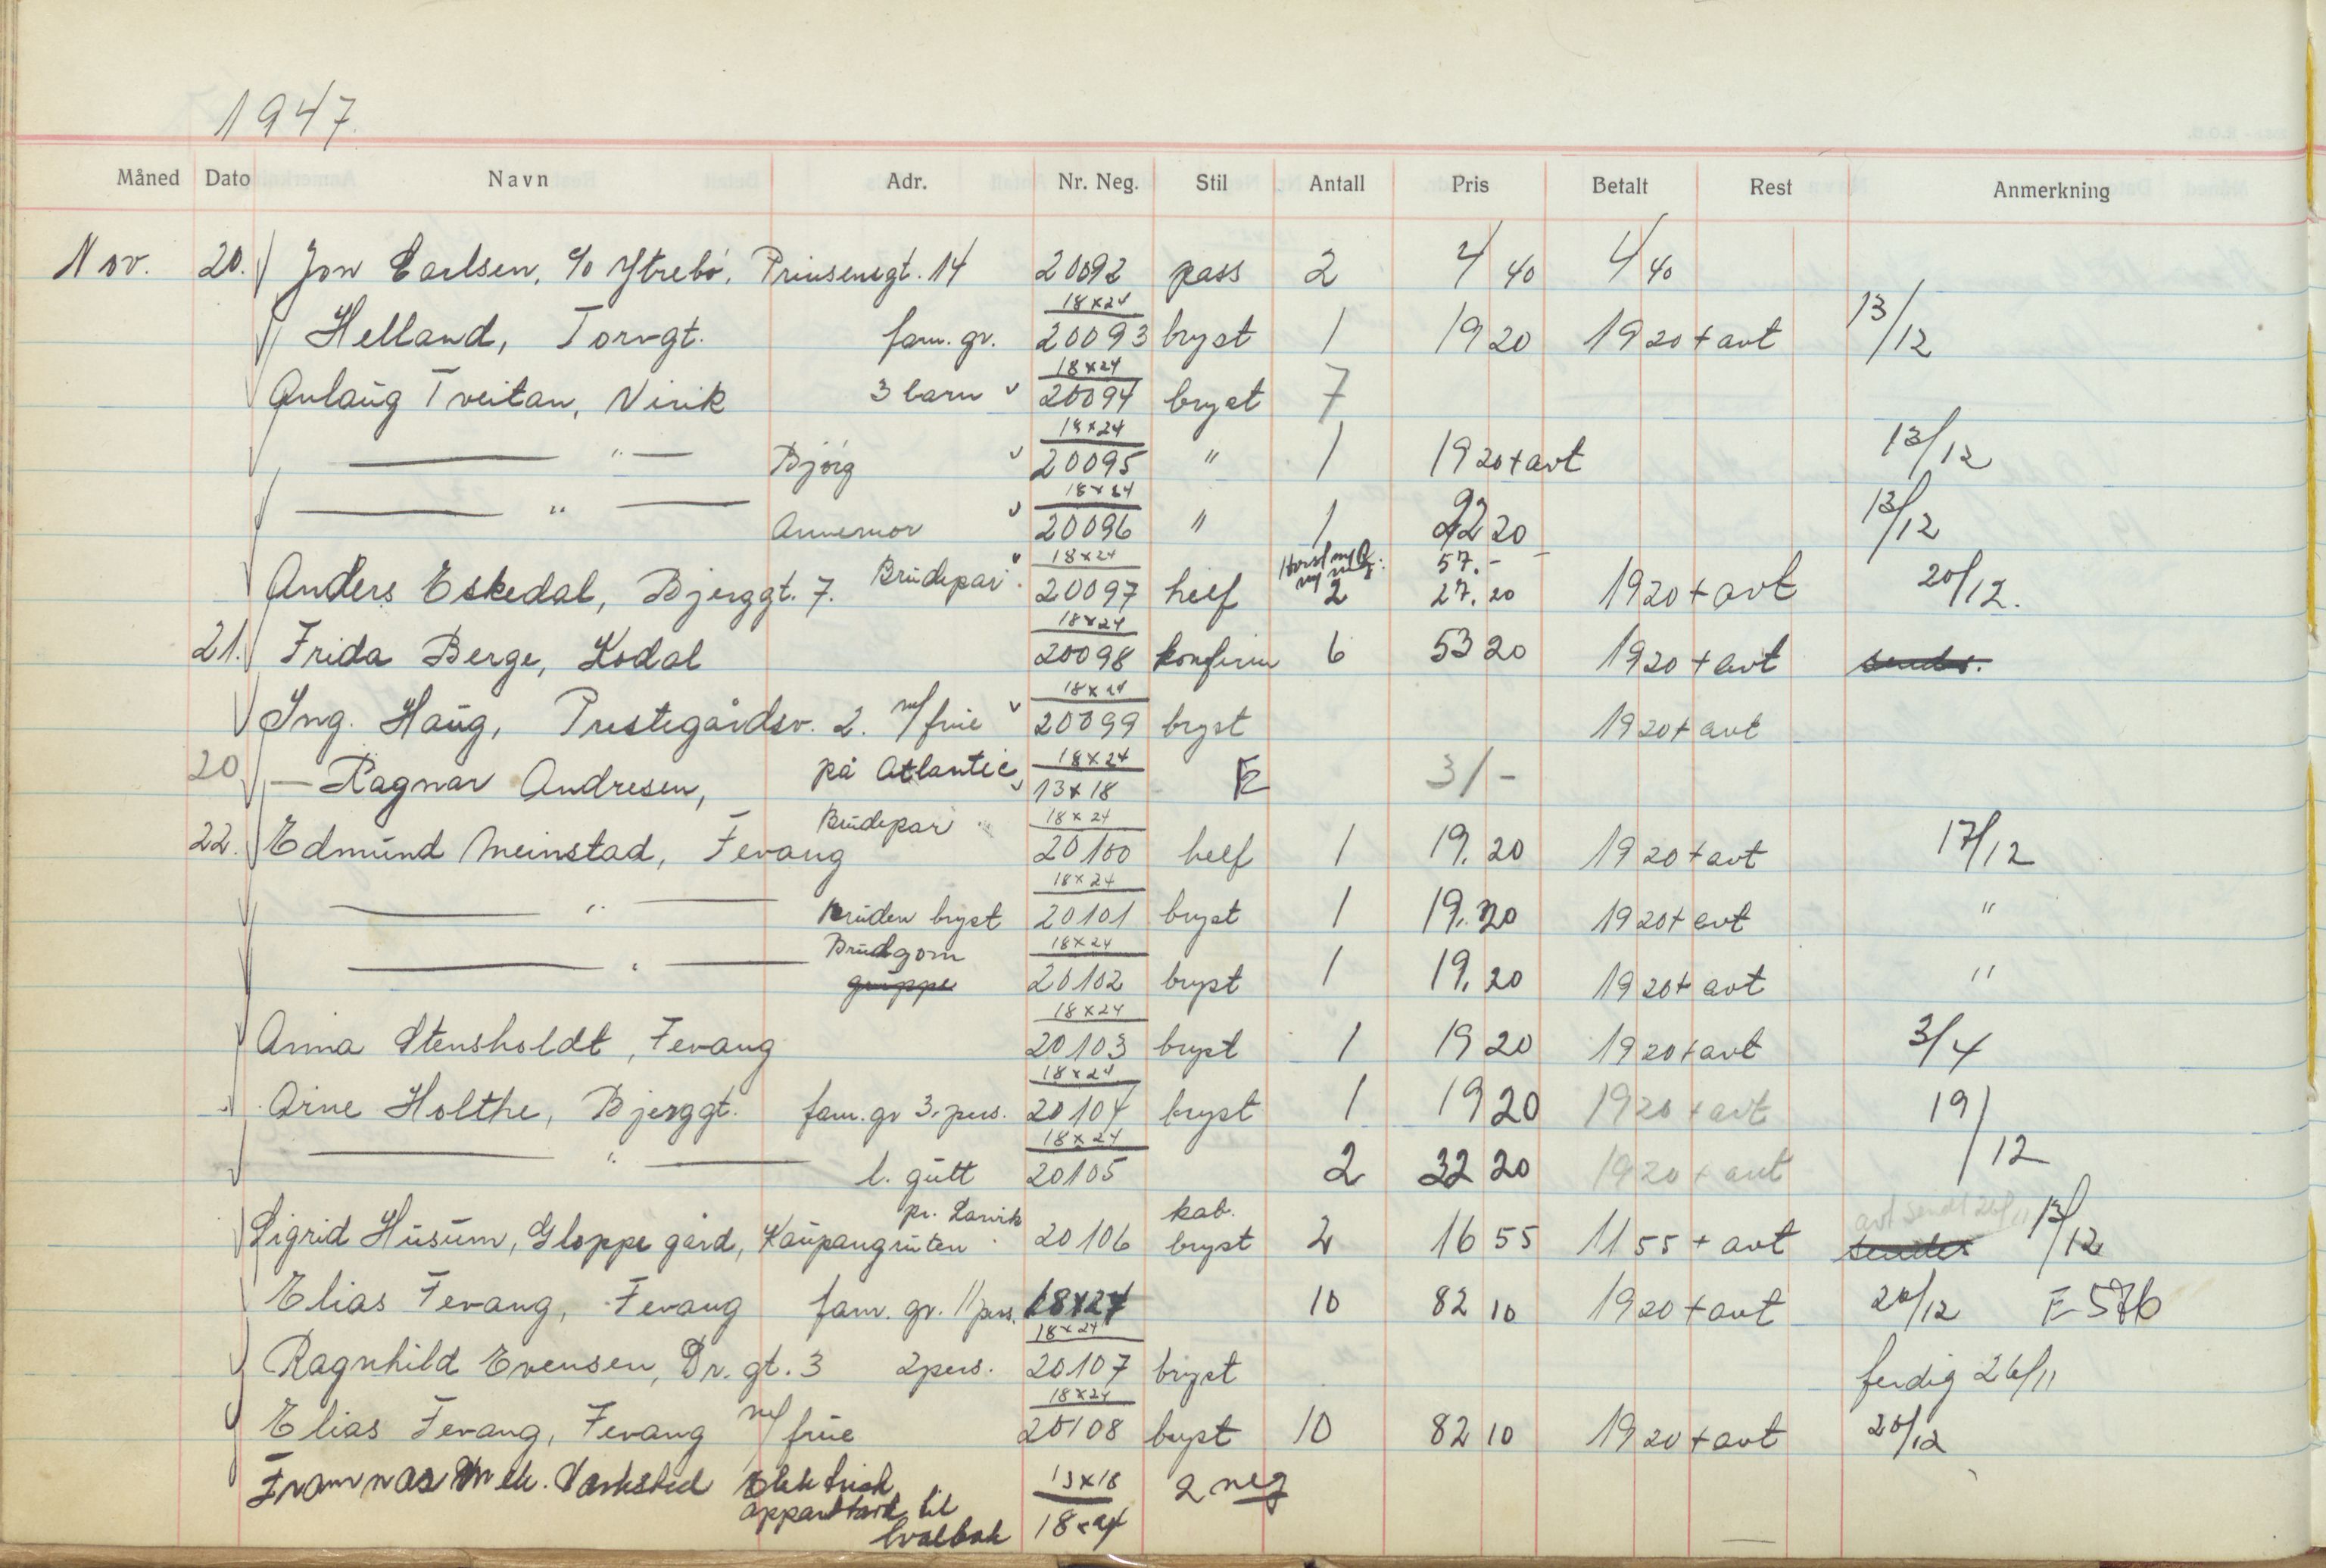 1947.
Måned Dato Navn Adr. Nr. Neg. Stil Antall Pris Betalt Rest Anmerkning
Nov. 20. Jon Carlsen, c/o Ytrebö, Prinsensgt. 14 20092 pass 2 4 40 4 40
Helland, Torvgt. fam. gr. 18x24 20093 bryst 1 19 20 19 20 + avt 13/12
Aulaug Tveitan, Virik 3 barn 18x24 20094 bryst 7
— " — Björg 18x24 20095 " 1 19 20 + avt 13/12
— " — Annemor 18x24 20096 " 1 22 20 13/12
Anders Eskedal, Bjerggt. 7. Brudepar 18x24 20097 helf 2 57.- 27.20 19 20 + avt 20/12.
21. Frida Berge, Kodal 18x24 20098 konfirm 6 53 20 19 20 + avt sendes.
Ing. Haug, Prestegårdsv. 2. m/frue 18x24 20099 bryst 19 20 + avt
20 — Ragnar Andresen, på Atlantic 18x24 13x18 E 3/-
22. Edmund Meinstad, Fevang Brudepar 18x24 20100 helf 1 19.20 19 20 + avt 17/12
— " — Bruden bryst 18x24 20101 bryst 1 19.20 19 20 + avt "
— " — Brudgom gruppe 18x24 20102 bryst 1 19.20 19 20 + avt "
Anna Stensholdt, Fevang 18x24 20103 bryst 1 19 20 19 20 + avt 3/4
Arne Holthe, Bjerggt. fam. gr 3. pers. 18x24 20104 bryst 1 19 20 19 20 + avt 19/12
— " — l. gutt 18x24 20105 2 32 20 19 20 + avt
Sigrid Husum, Gloppe gård, Kaupangruten pr. Larvik 20106 kab. bryst 2 16 55 11 55 + avt avt sendt 26/11 sendes 13/12
Elias Fevang, Fevang fam. gr. 11 pers. 18x24 10 82 10 19 20 + avt 20/12 E 576
Ragnhild Evensen, Dr. gt. 3 2 pers. 18x24 20107 bryst ferdig 26/11
Elias Fevang, Fevang m/frue 18x24 20108 bryst 10 82 10 19 20 + avt 20/12
Framnæs mek. Værksted Elektrisk 13x18 2 neg
til
hvalbåt 18x24